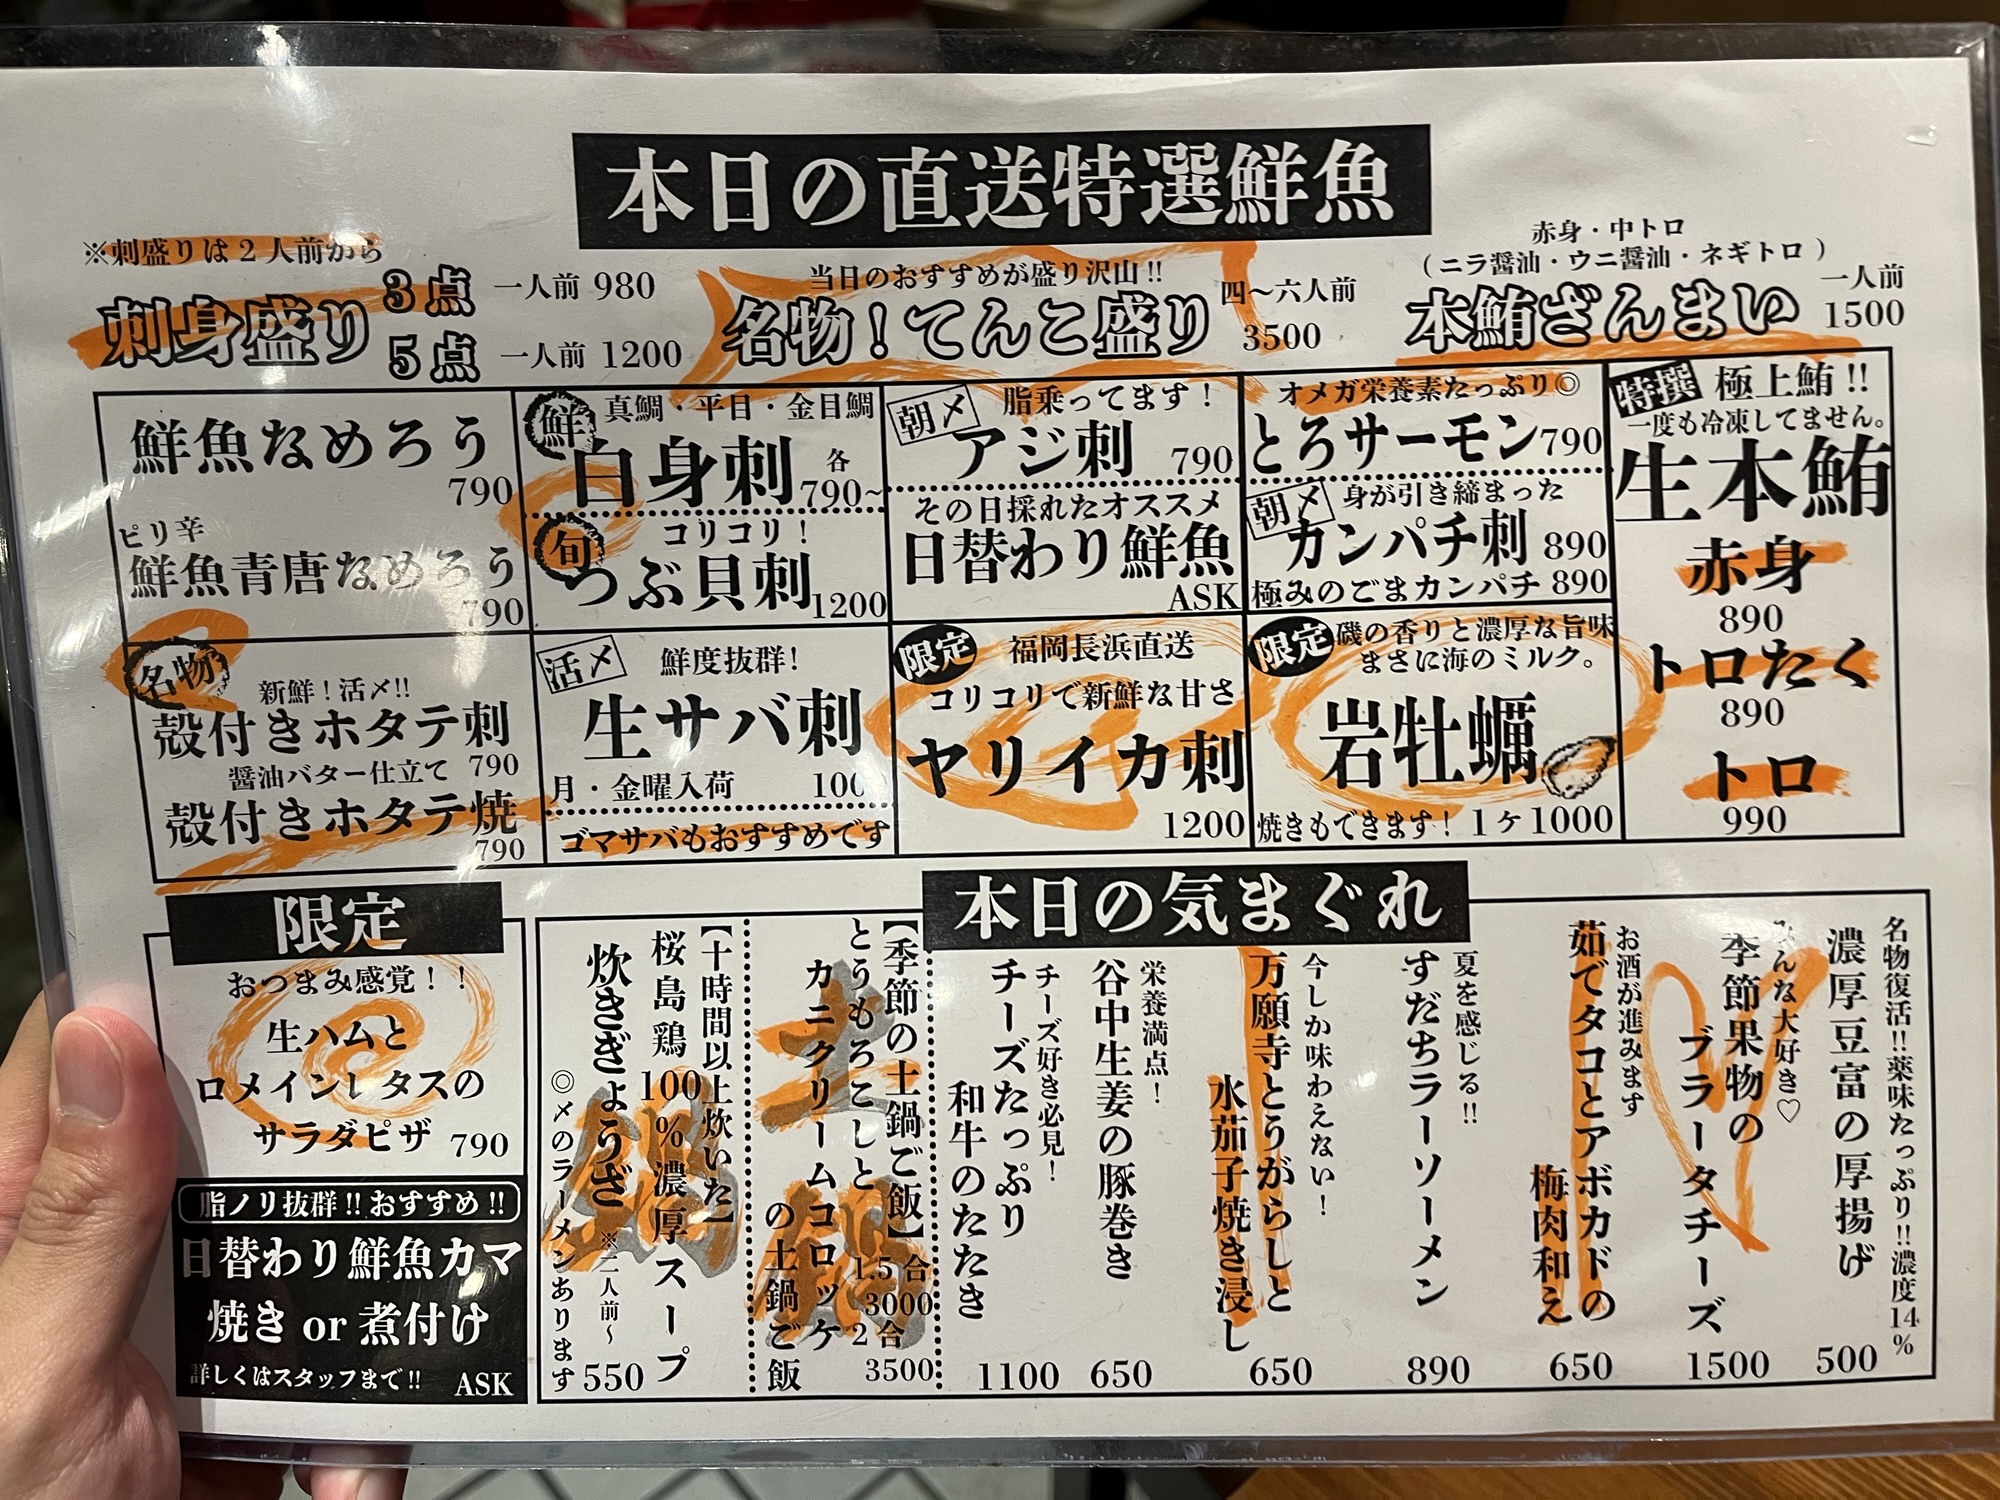 本日の直送特選鮮魚
※刺盛りは2人前から
刺身盛り
3点 一人前 980
5点 一人前 1200
当日のおすすめが盛り沢山!!
名物!てんこ盛り
四〜六人前
3500
赤身・中トロ
(ニラ醤油・ウニ醤油・ネギトロ)
本鮪ざんまい
一人前
1500
鮮魚なめろう
790
ピリ辛
鮮魚青唐なめろう
790
鮮 真鯛・平目・金目鯛
白身刺 各
790~
旬 コリコリ!
つぶ貝刺 1200
朝〆 脂乗ってます!
アジ刺 790
その日採れたオススメ
日替わり鮮魚
ASK
オメガ栄養素たっぷり◎
とろサーモン790
朝〆 身が引き締まった
カンパチ刺 890
極みのごまカンパチ 890
特撰 極上鮪!!
一度も冷凍してません。
生本鮪
赤身
890
トロたく
890
トロ
990
名物
新鮮!活〆!!
殻付きホタテ刺
790
醤油バター仕立て
殻付きホタテ焼
790
活〆 鮮度抜群!
生サバ刺
月・金曜入荷
ゴマサバもおすすめです
限定 福岡長浜直送
コリコリで新鮮な甘さ
ヤリイカ刺
1200
限定 磯の香りと濃厚な旨味
まさに海のミルク。
岩牡蠣
焼きもできます! 1ヶ1000
限定
おつまみ感覚!!
生ハムと
ロメインレタスの
サラダピザ 790
脂ノリ抜群!!おすすめ!!
日替わり鮮魚カマ
焼き or 煮付け
詳しくはスタッフまで!! ASK
本日の気まぐれ
名物復活!!薬味たっぷり!!濃度14%
濃厚豆富の厚揚げ
500
みんな大好き♡
季節果物の
ブラータチーズ
1500
お酒が進みます
茹でタコとアボカドの
梅肉和え
650
夏を感じる!!
すだちラーソーメン
890
今しか味わえない!
万願寺とうがらしと
水茄子焼き浸し
650
栄養満点!
谷中生姜の豚巻き
650
チーズ好き必見!
チーズたっぷり
和牛のたたき
1100
土鍋
【季節の土鍋ご飯】
とうもろこしと
カニクリームコロッケ
の土鍋ご飯
1.5合
3000
2合
3500
鍋
【十時間以上炊いた】
桜島鶏100%濃厚スープ
炊きぎょうざ
※二人前〜
550
◎〆のラーメンあります